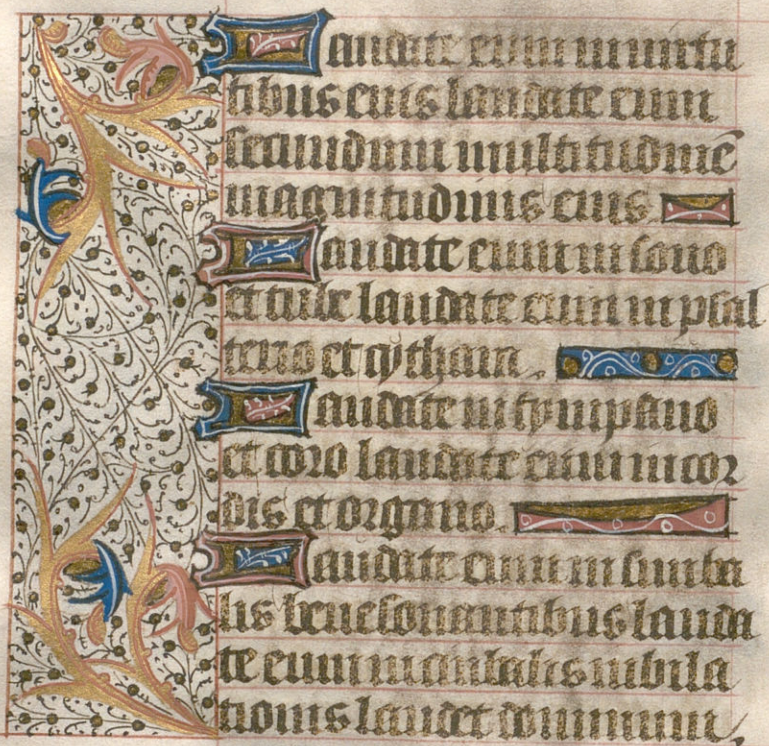 Laudate eum in uirtu
tibus eius laudate eum
secundum multitudinē
magnitudinis eius
Laudate eum in sono
et tube laudate eum in psal
terio et cythara.
Laudate in tympano
et coro laudate eum in cor
dis et organo.
Laudate eum in simba
lis bene sonantibus lauda
te eum in cimbalis iubila
tionis laudet dominum